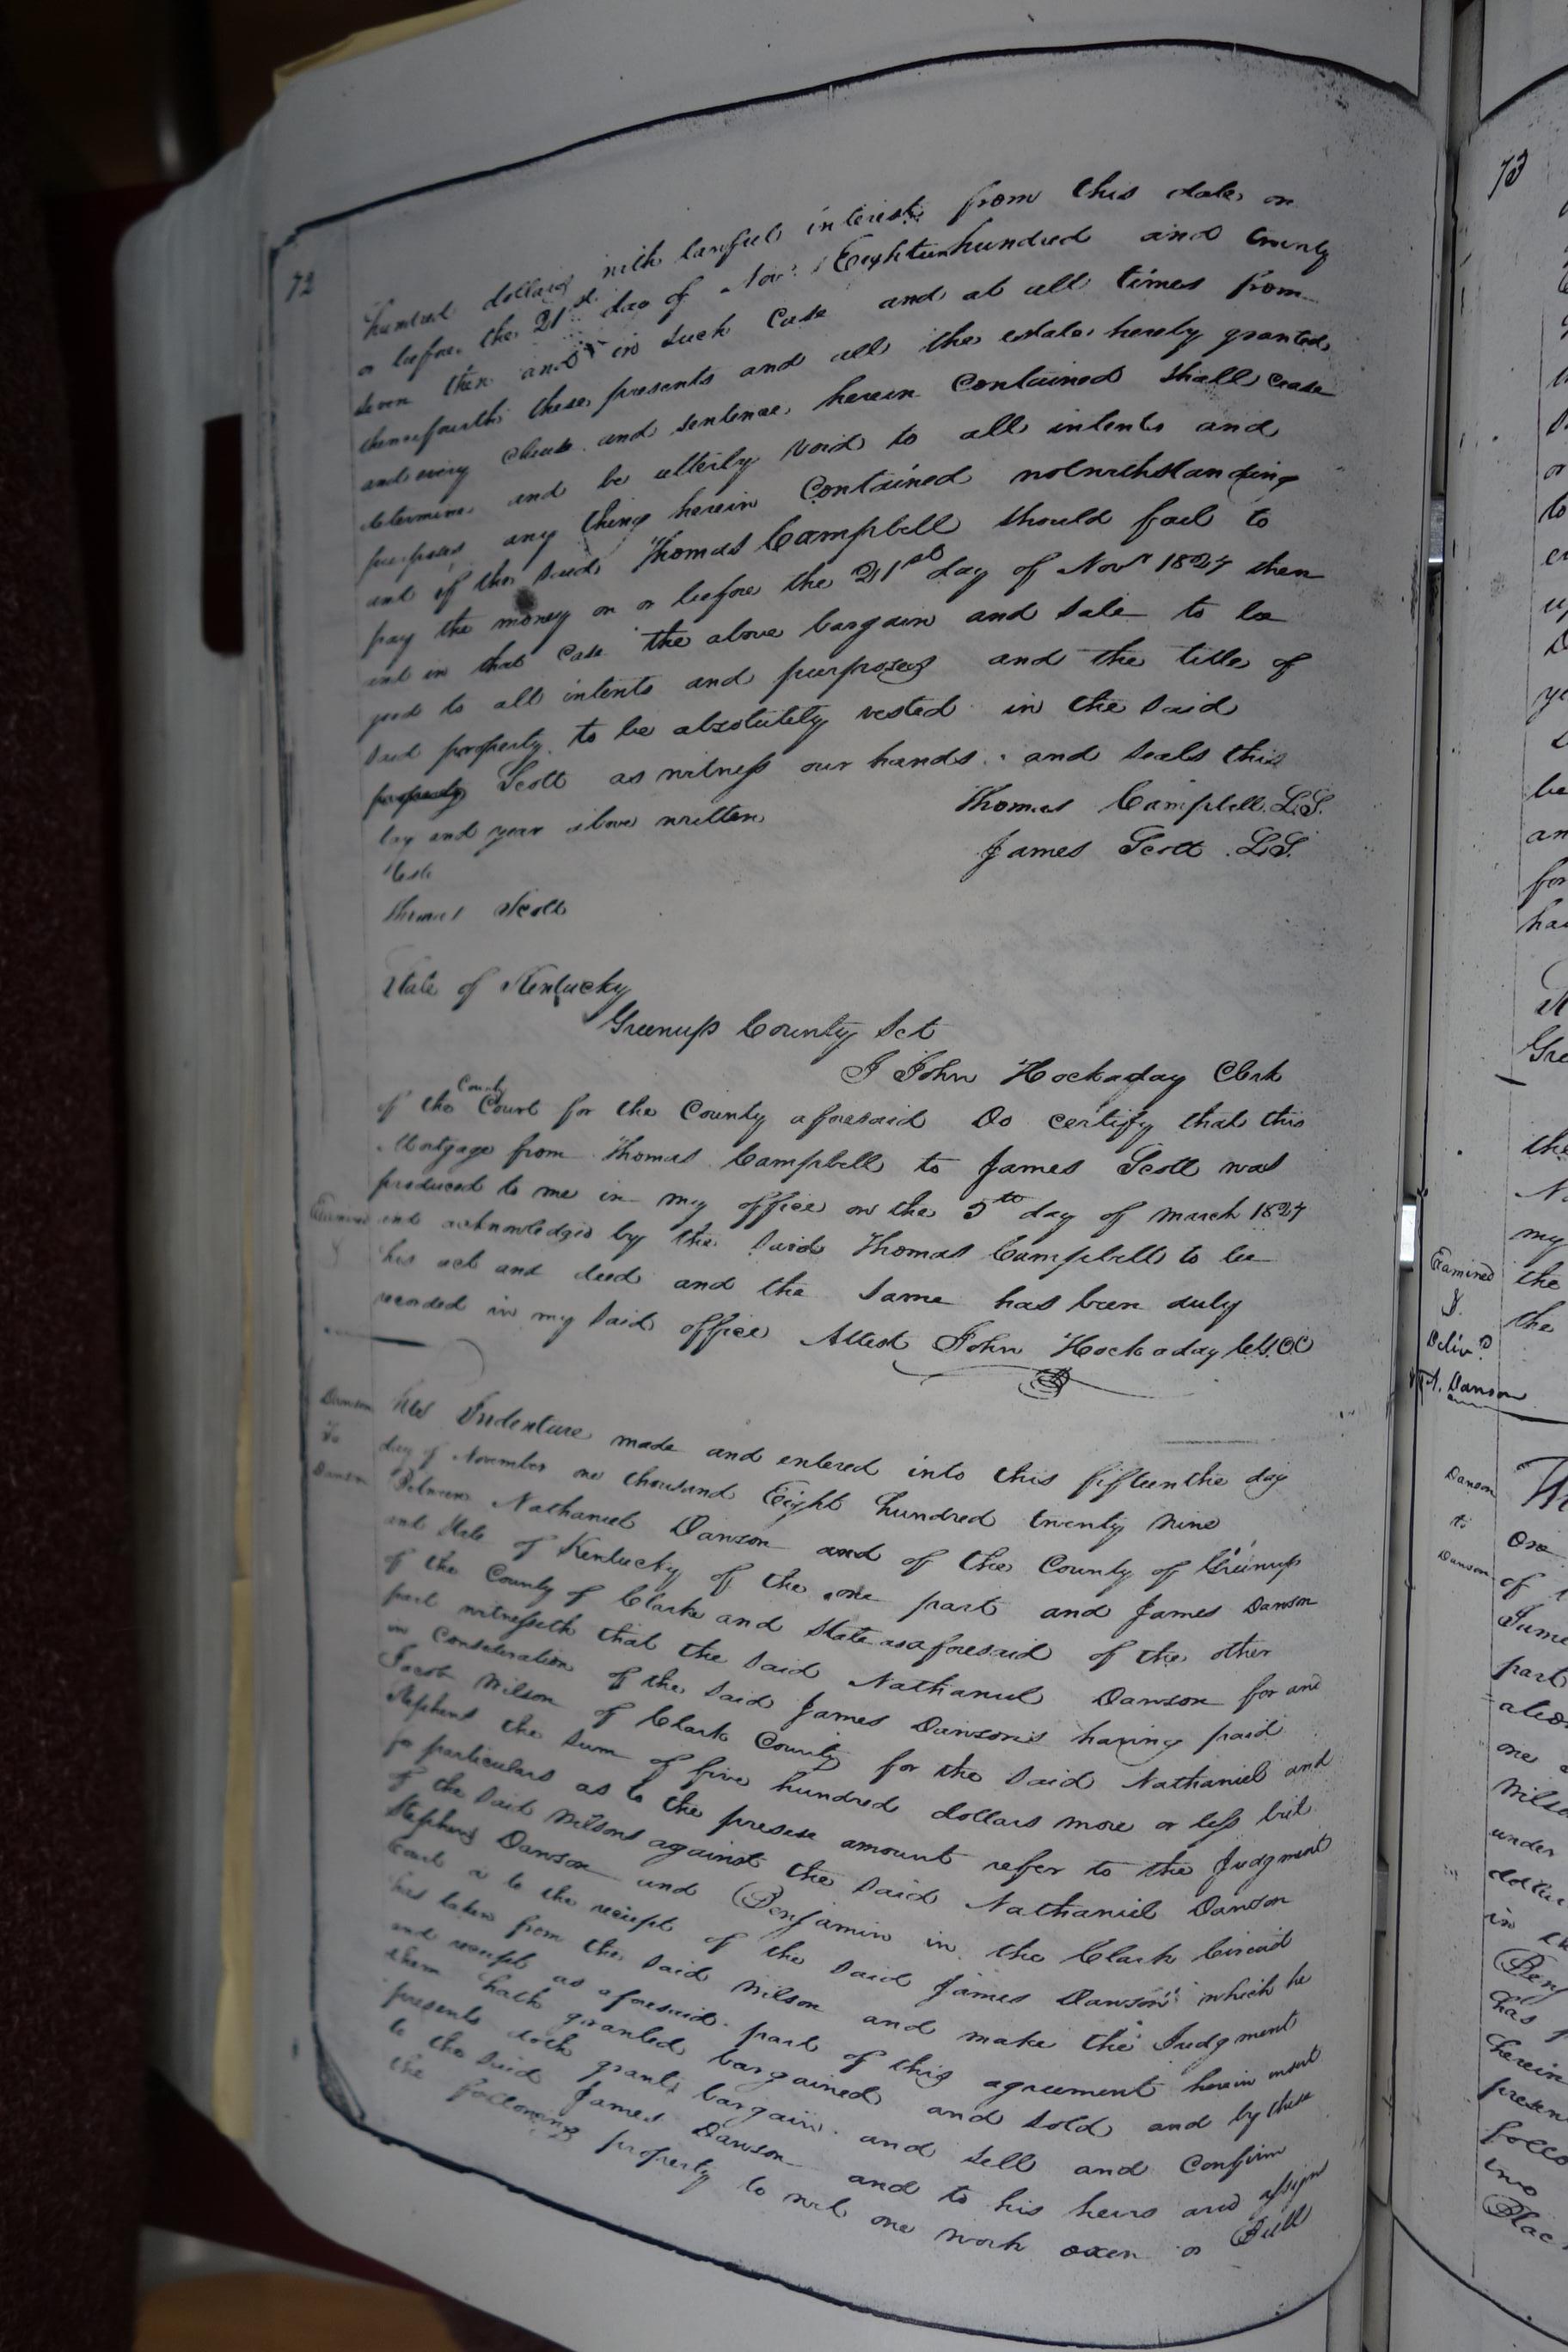 72
hundred dollars with lawful interest from this date on
or before the 21st day of Nov. Eighteen hundred and twenty
seven then and in such case and at all times from
thenceforth these presents and all the estate hereby granted
and every clause and sentence herein contained shall cease
determine and be utterly void to all intents and
purposes any thing herein contained notwithstanding
and if the said Thomas Campbell should fail to
pay the money on or before the 21st day of Novr 1827 then
and in that case the above bargain and sale to be
good to all intents and purposes and the title of
said property to be absolutely vested in the said
Scott as witness our hands and seals this
day and year above written
Thomas Campbell L.S.
James Scott L.S.
Teste
Thomas Scott
State of Kentucky
Greenup County Sct
I John Hockaday Clerk
of the County Court for the County aforesaid Do certify that this
Mortgage from Thomas Campbell to James Scott was
produced to me in my office on the 5th day of March 1827
Examined
and acknowledged by the said Thomas Campbell to be
his act and deed and the same has been duly
recorded in my said office Attest John Hockaday C.G.C.C
Dawson
To
Dawson
This Indenture made and entered into this fifteenthe day
day of November one thousand Eight hundred twenty nine
Between Nathaniel Dawson and of the County of Greenup
and State of Kentucky of the one part and James Dawson
of the County of Clarke and State as aforesaid of the other
part witnesseth that the said Nathaniel Dawson for and
in consideration of the said James Dawsons having paid
Jacob Wilson of Clark County for the said Nathaniel and
Stephens the sum of five hundred dollars more or less but
for particulars as to the presise amount refer to the Judgment
of the said Wilsons against the said Nathaniel Dawson
Stephens Dawson and Benjamin in the Clark Circuit
Court & to the reciept of the said James Dawson which he
has taken from the said Wilson and make the Judgment
and receipt as aforesaid part of this agreement herein
them hath granted bargained and sold and by these
presents doth grant bargain and sell and confirm
to the said James Dawson and to his heirs and assigns
the following property to wit one work oxen or Bull
73
Examined
&
Deliv.d
Dawson
Dawson
to
Dawson